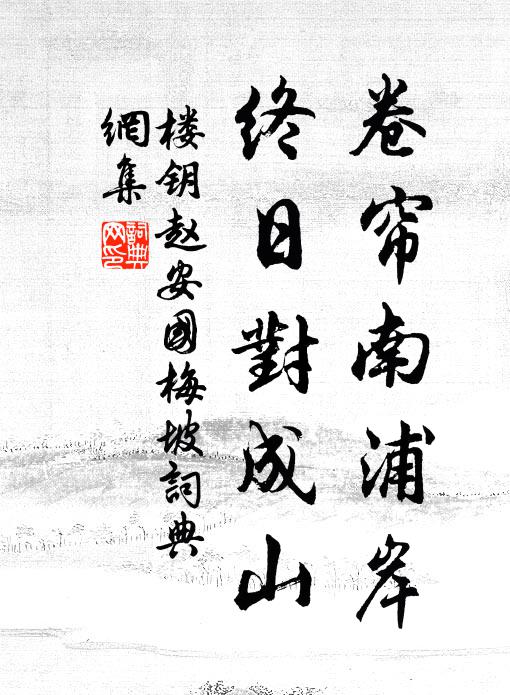 卷帘南浦岸
终日對成山
楼钥赵安國梅坡詞典
網集
詞典
网印